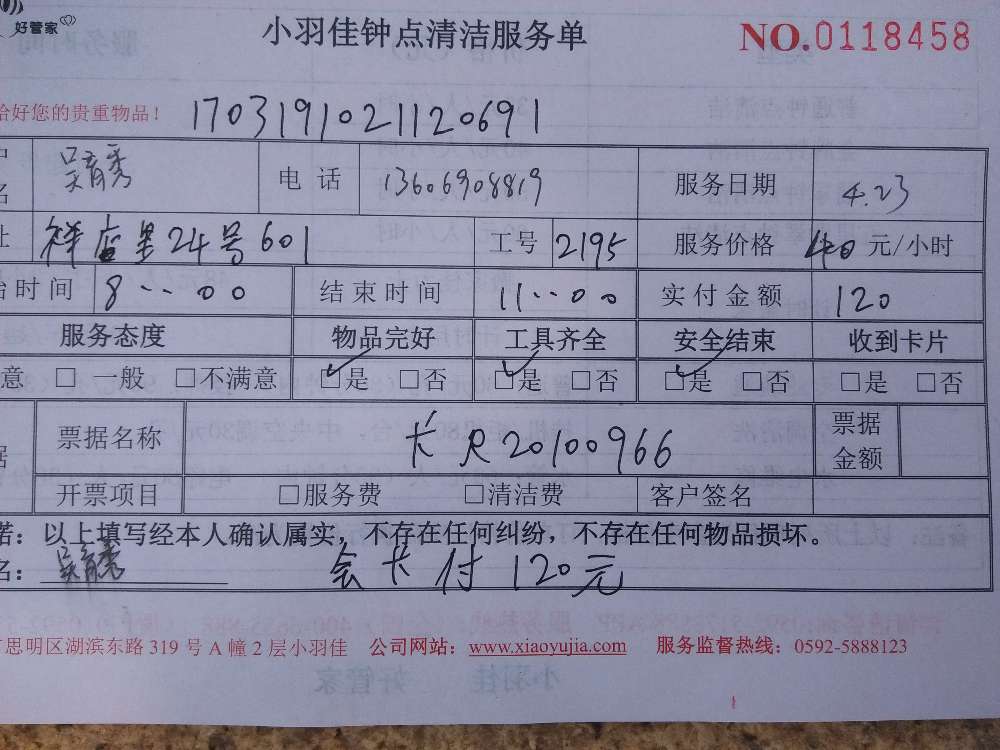 好管家
小羽佳钟点清洁服务单
NO.0118458
给好您的贵重物品！ 1703191021120691
吴育秀 电话 13606908819 服务日期 4.23
祥店里24号601 工号 2195 服务价格 40 元/小时
始时间 8：00 结束时间 11：00 实付金额 120
服务态度 物品完好 工具齐全 安全结束 收到卡片
意 □ 一般 □不满意 □是 □否 □是 □否 □是 □否 □是 □否
票据名称 卡 R20100966 票据金额
开票项目 □服务费 □清洁费 客户签名
诺：以上填写经本人确认属实，不存在任何纠纷，不存在任何物品损坏。
名：吴育秀 会卡付120元
思明区湖滨东路 319 号 A 幢 2 层小羽佳 公司网站：www.xiaoyujia.com 服务监督热线：0592-5888123